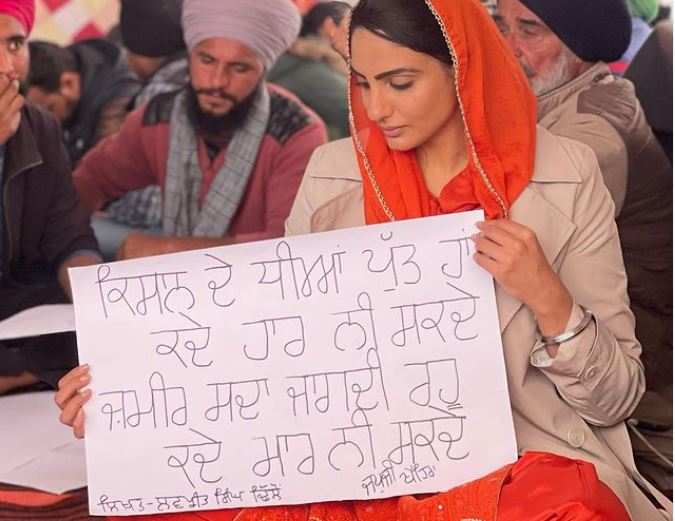 ਕਿਸਾਨ ਦੇ ਧੀਆਂ ਪੁੱਤ ਹਾਂ
ਕਦੇ ਹਾਰ ਨੀ ਸਕਦੇ
ਜ਼ਮੀਰ ਸਦਾ ਜਾਗਦੀ ਰਹੂ
ਕਦੇ ਮਾਰ ਨੀ ਸਕਦੇ
ਲਿਖਤ - ਨਵਜੀਤ ਸਿੰਘ ਢਿੱਲੋਂ
ਜਪੁਜੀ ਖਹਿਰਾ